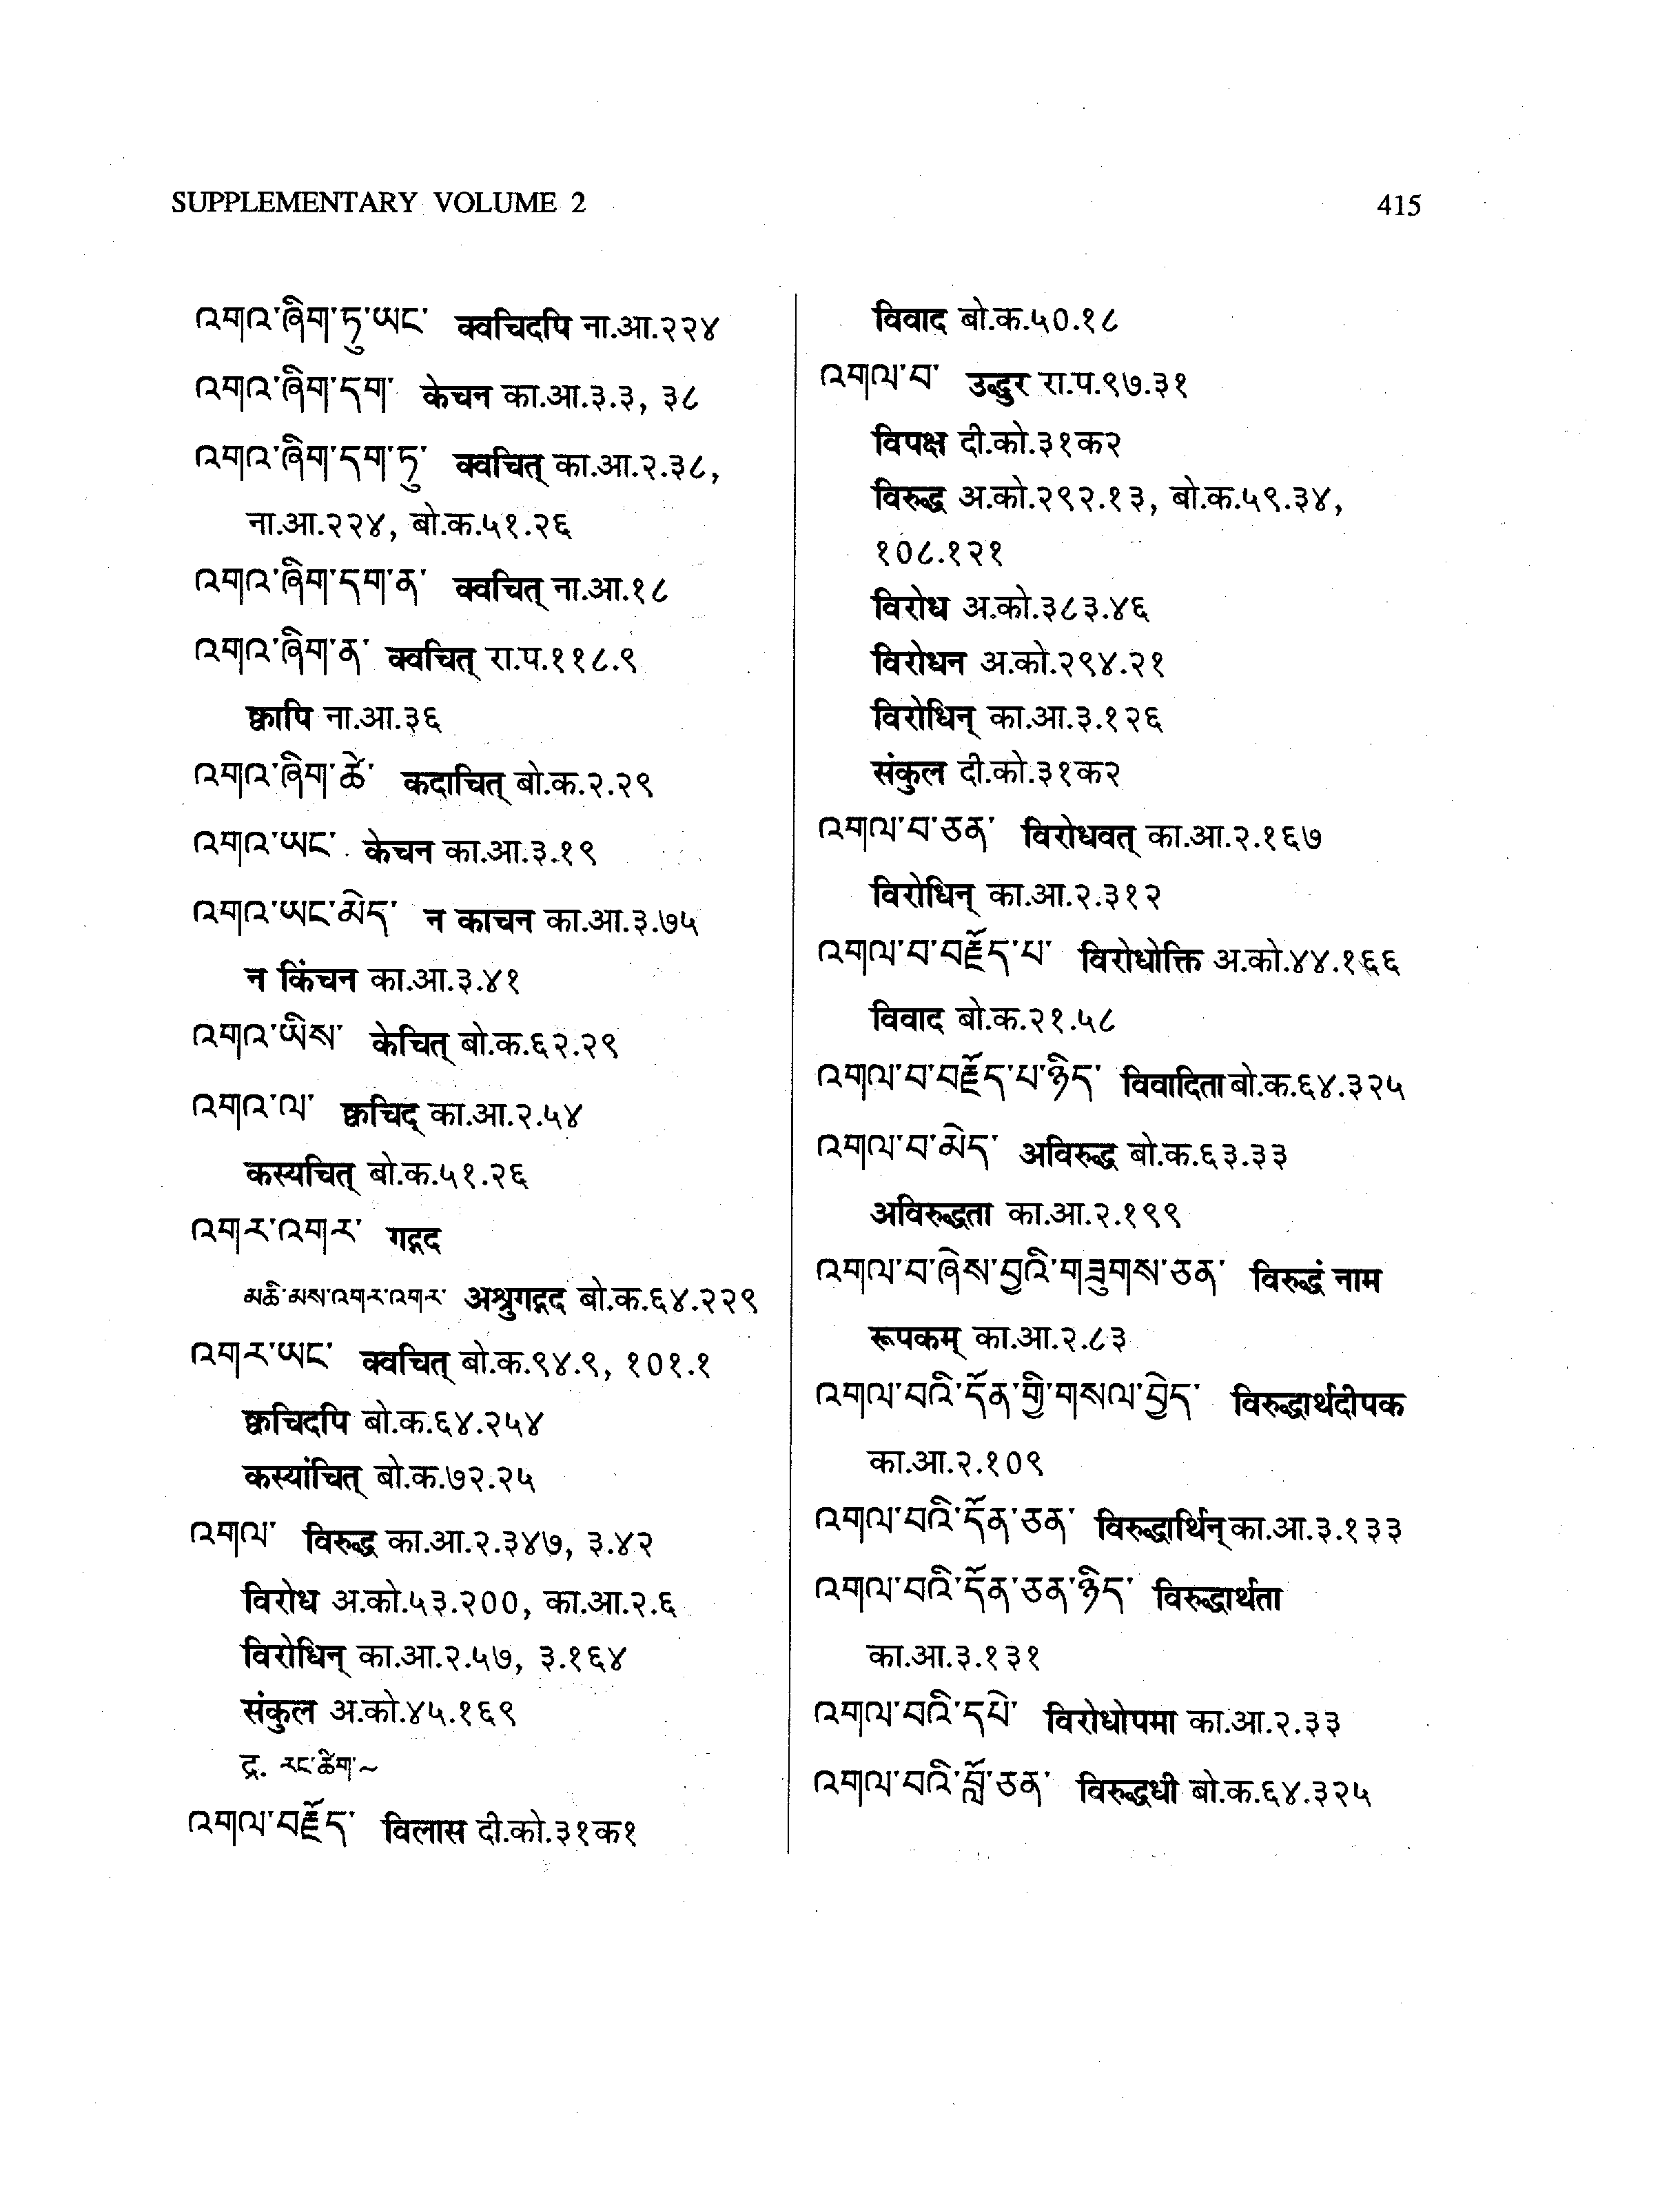 SUPPLEMENTARY VOLUME 2
415
འགའ་ཞིག་ཏུ་ཡང་ क्वचिदपि ना.आ.२२४
འགའ་ཞིག་དག་ केचन का.आ.३.३, ३८
འགའ་ཞིག་དག་ཏུ་ क्वचित् का.आ.२.३८,
ना.आ.२२४, बो.क.५१.२६
འགའ་ཞིག་དག་ན་ क्वचित् ना.आ.१८
འགའ་ཞིག་ན་ क्वचित् रा.प.११८.९
क्वापि ना.आ.३६
འགའ་ཞིག་ཚེ་ कदाचित् बो.क.२.२९
འགའ་ཡང་ केचन का.आ.३.१९
འགའ་ཡང་མེད་ न काचन का.आ.३.७५
न किंचन का.आ.३.४१
འགའ་ཡིས་ केचित् बो.क.६२.२९
འགའ་ལ་ क्वचिद् का.आ.२.५४
कस्यचित् बो.क.५१.२६
འགར་འགར་ गद्गद
མཆི་མས་འགར་འགར་ अश्रुगद्गद बो.क.६४.२२९
འགར་ཡང་ क्वचित् बो.क.९४.९, १०१.१
क्वचिदपि बो.क.६४.२५४
कस्यांचित् बो.क.७२.२५
འགལ་ विरुद्ध का.आ.२.३४७, ३.४२
विरोध अ.को.५३.२००, का.आ.२.६
विरोधिन् का.आ.२.५७, ३.१६४
संकुल अ.को.४५.१६९
द्र. རང་ཚིག་~
འགལ་བརྗོད་ विलास दी.को.३१क१
विवाद बो.क.५०.१८
འགལ་བ་ उद्धुर रा.प.९७.३१
विपक्ष दी.को.३१क२
विरुद्ध अ.को.२९२.१३, बो.क.५९.३४,
१०८.१२१
विरोध अ.को.३८३.४६
विरोधन अ.को.२९४.२१
विरोधिन् का.आ.३.१२६
संकुल दी.को.३१क२
འགལ་བ་ཅན་ विरोधवत् का.आ.२.१६७
विरोधिन् का.आ.२.३१२
འགལ་བ་བརྗོད་པ་ विरोधोक्ति अ.को.४४.१६६
विवाद बो.क.२१.५८
འགལ་བ་བརྗོད་པ་ཉིད་ विवादिता बो.क.६४.३२५
འགལ་བ་མེད་ अविरुद्ध बो.क.६३.३३
अविरुद्धता का.आ.२.१९९
འགལ་བ་ཞེས་བྱའི་གཟུགས་ཅན་ विरुद्धं नाम
रूपकम् का.आ.२.८३
འགལ་བའི་དོན་གྱི་གསལ་བྱེད་ विरुद्धार्थदीपक
का.आ.२.१०९
འགལ་བའི་དོན་ཅན་ विरुद्धार्थिन् का.आ.३.१३३
འགལ་བའི་དོན་ཅན་ཉིད་ विरुद्धार्थता
का.आ.३.१३१
འགལ་བའི་དཔེ་ विरोधोपमा का.आ.२.३३
འགལ་བའི་བློ་ཅན་ विरुद्धधी बो.क.६४.३२५